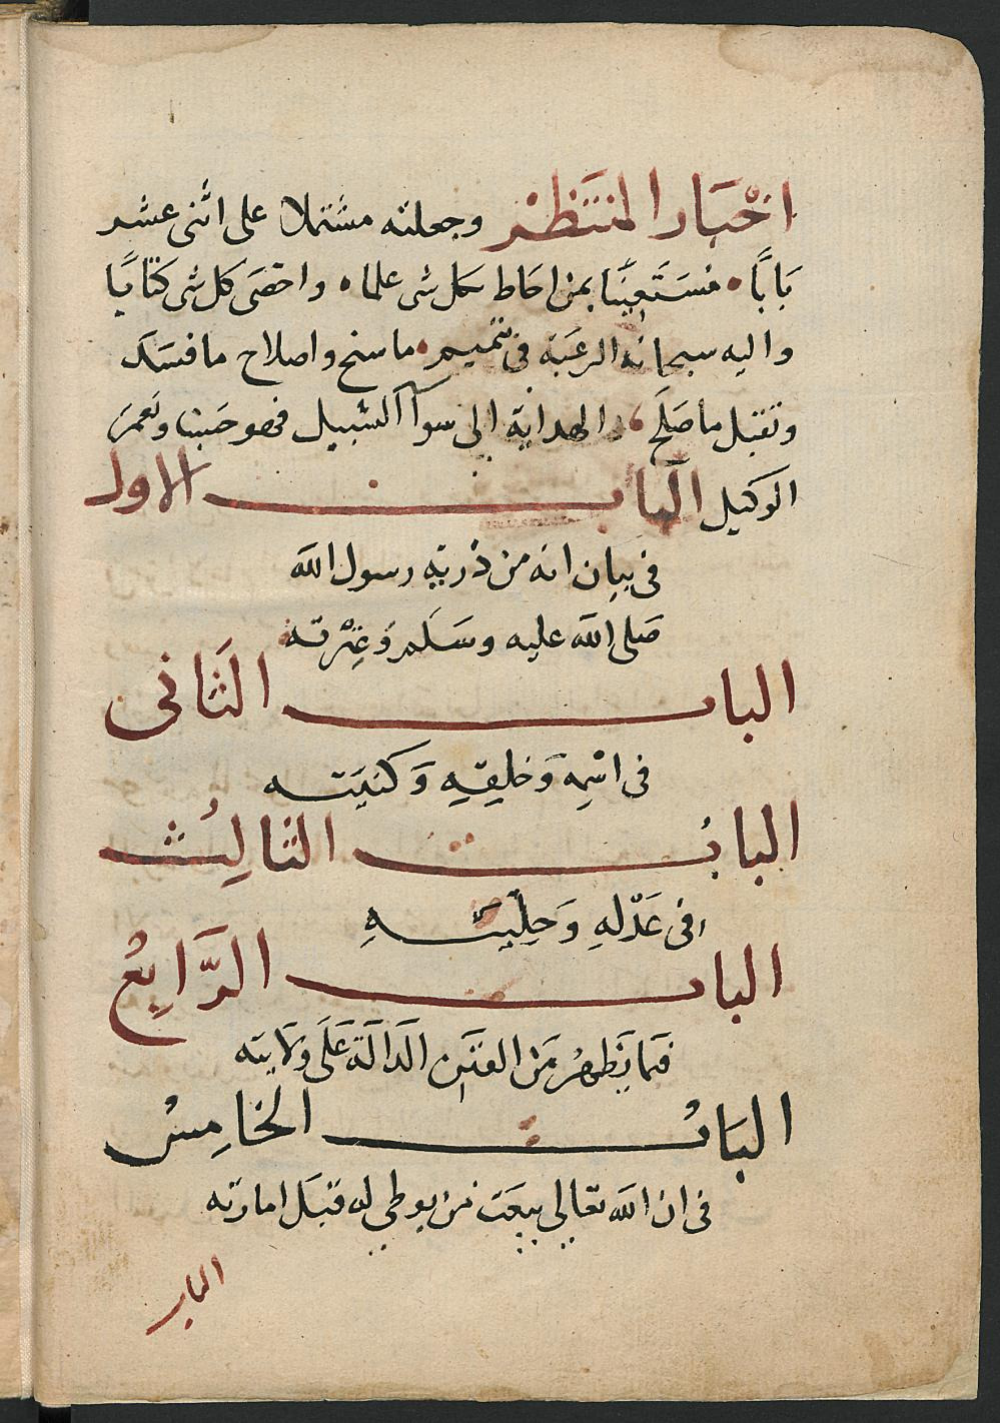 اخْبَار المنتَظَرْ وجعلته مشتملا على اثنى عشر
بَابًا مُسْتَعِينًا بمن احاط بكل شى علما واحصَى كل شى كتابًا
واليه سبحانه الرغبة فى تتميم ما سنح واصلاح ما فسَد
وتقبل ما صَلَح والهداية الى سوآ السبيل فهو حسْبنا ونعمَ
الوكيل البابُ الاول
فى بيان انه من ذريةِ رسول الله
صَلى الله عليه وسَلم وَعِتْرته
الباب الثَانى
فى اسْمِهِ وَخلِقِهِ وَكنيَته
البابُ الثالِثُ
فى عَدْلهِ وَحِلْيتهِ
الباب الرَّابِعُ
فيما يَظهرُ مَن الفتَن الدَالة عَلَى ولايته
البَابُ الخامِسُ
فى ان الله تعالى يبعَث من يوطى له قبَل امارته
الباب